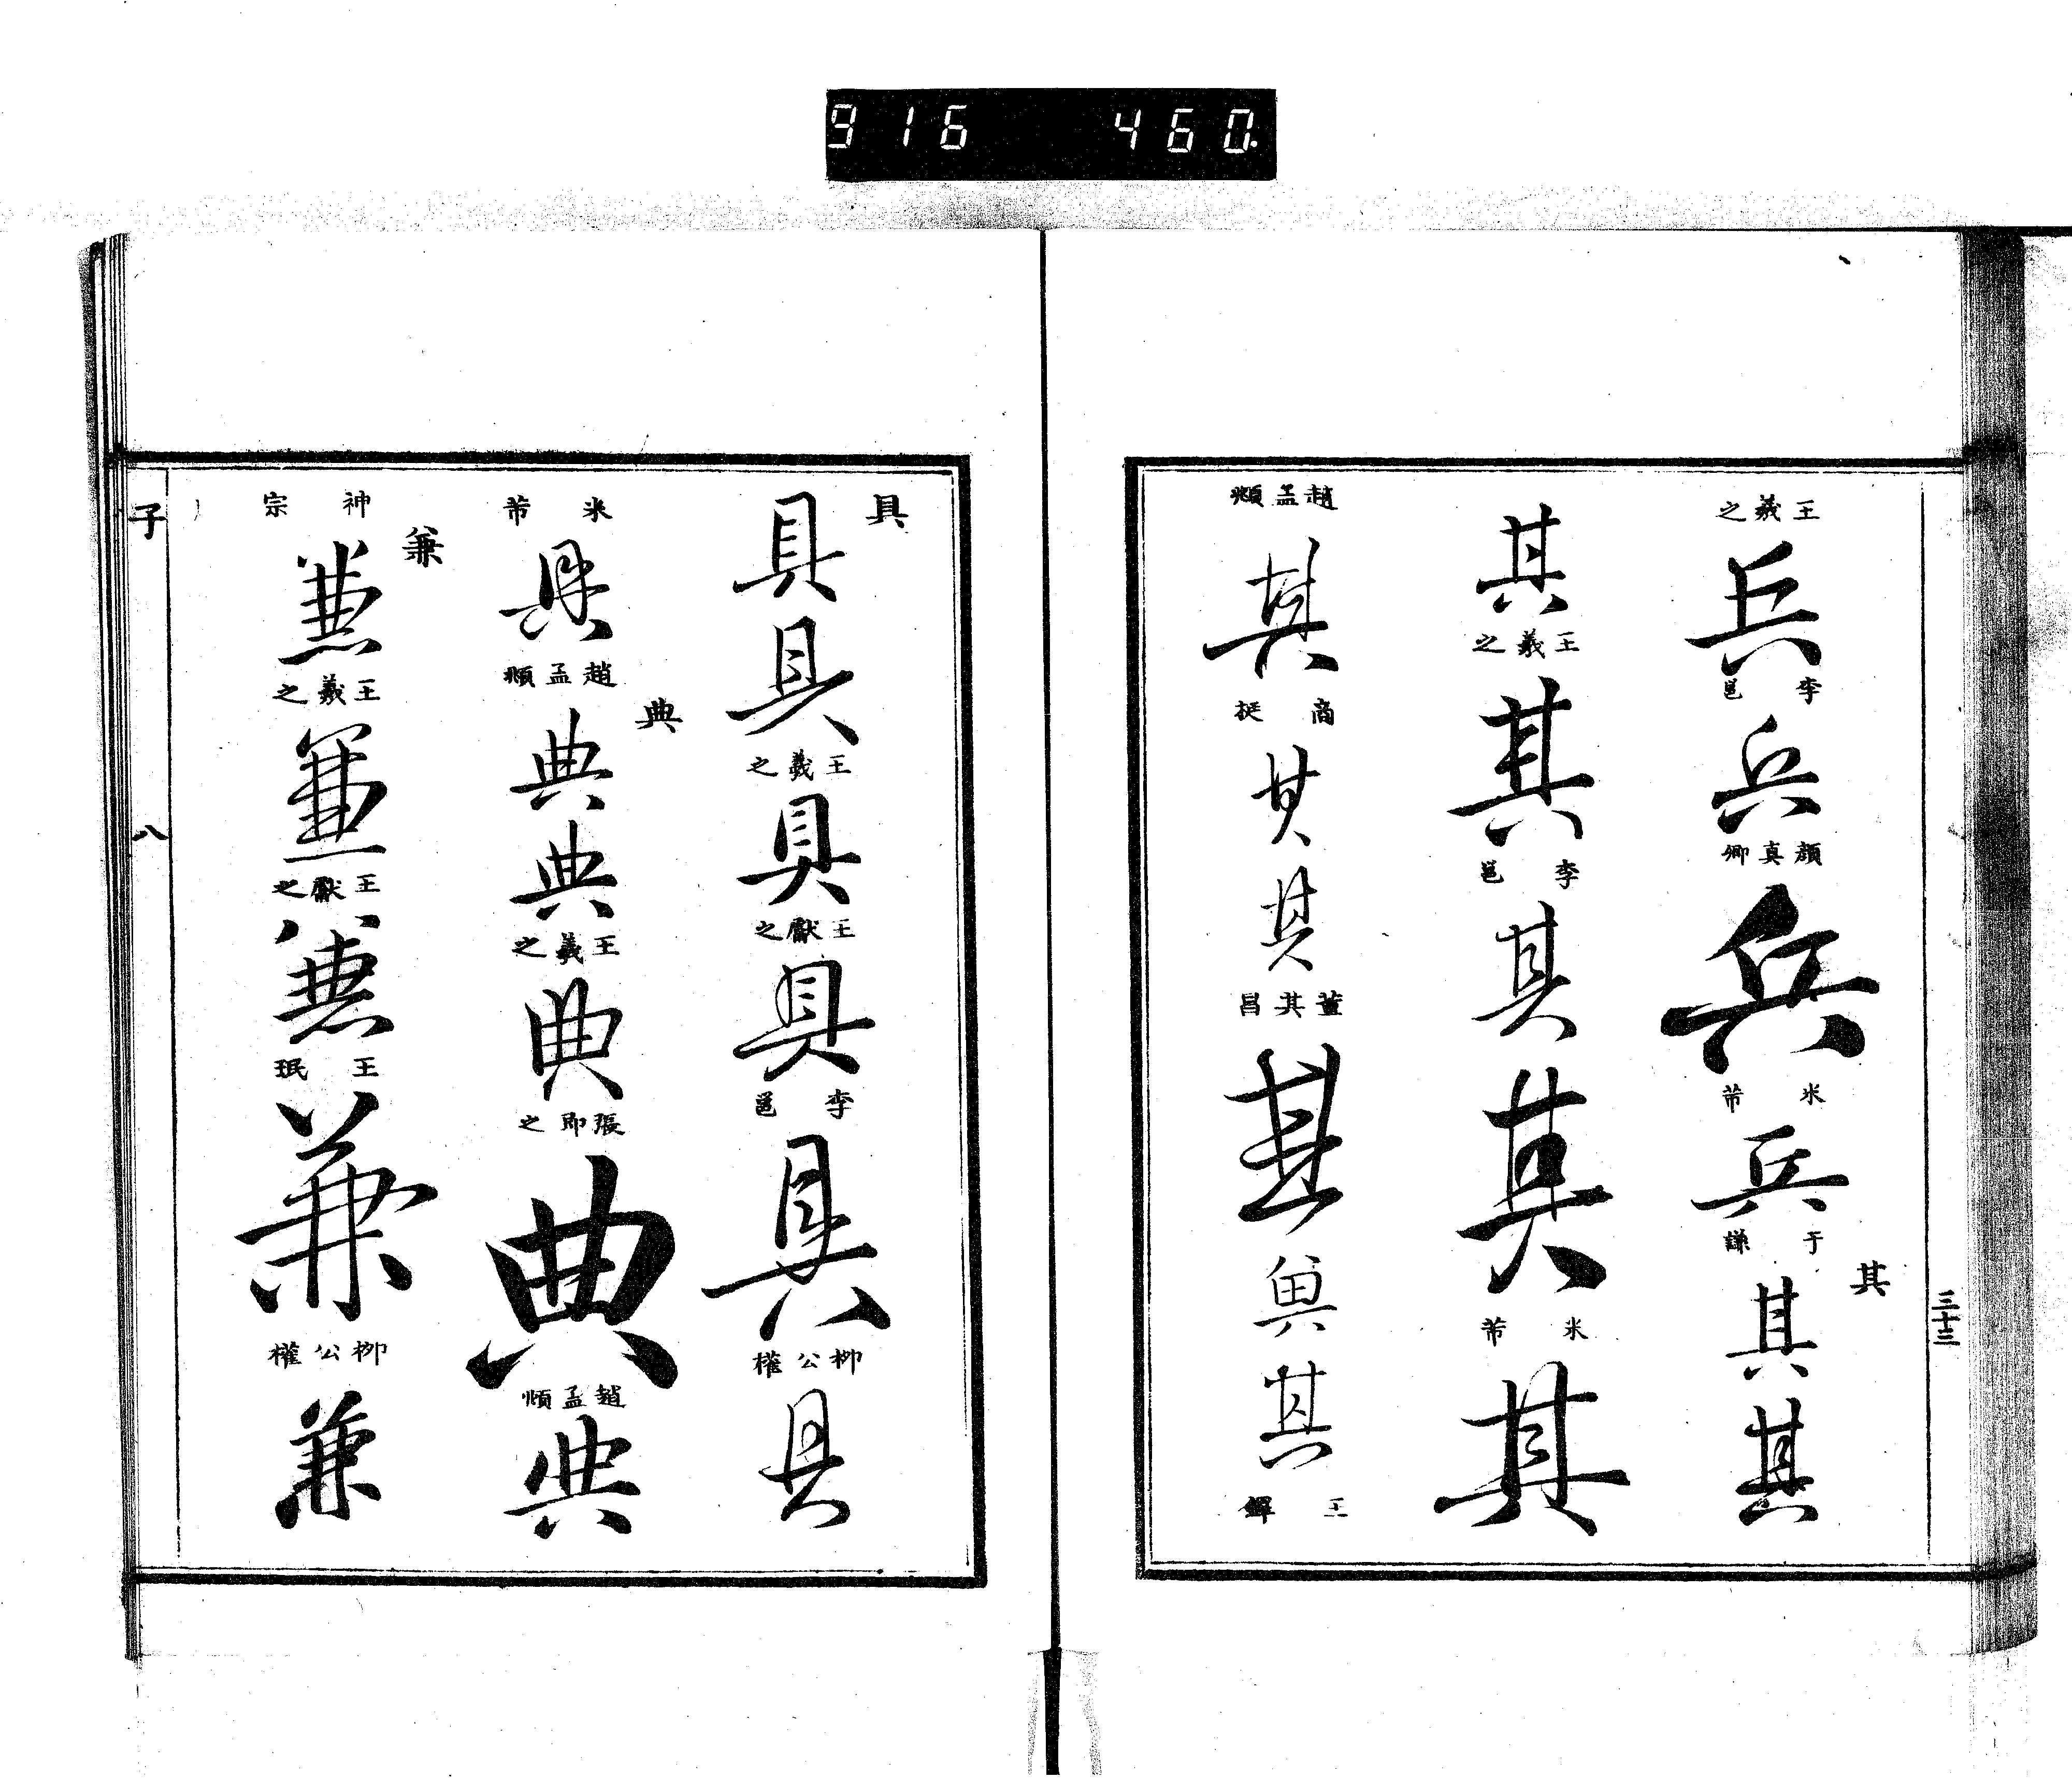 916 460.
三十三
王羲之
兵
李邕
兵
顏真卿
兵
米芾
兵
于謙
其
其
其
其
王羲之
其
李邕
其
其
米芾
其
趙孟頫
其
商挺
其
其
董其昌
其
其
其
王鐸
具
具
具
王羲之
具
王獻之
具
李邕
具
柳公權
具
米芾
具
趙孟頫
典
典
典
王羲之
典
張即之
典
趙孟頫
典
神宗
兼
兼
王羲之
兼
王獻之
兼
王珉
兼
柳公權
兼
子
八